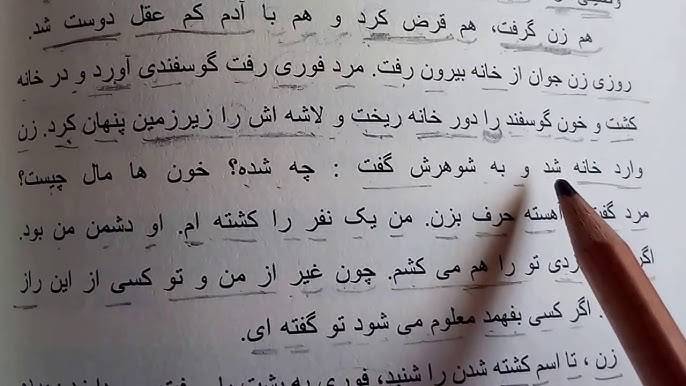 هم زن گرفت، هم قرض کرد و هم با آدم کم عقل دوست شد.
روزی زن جوان از خانه بیرون رفت. مرد فوری رفت گوسفندی آورد و در خانه
کشت و خون گوسفند را دور خانه ریخت و لاشه اش را زیرزمین پنهان کرد. زن
وارد خانه شد و به شوهرش گفت : چه شده؟ خون ها مال چیست؟
مرد گفت آهسته حرف بزن. من یک نفر را کشته ام. او دشمن من بود.
اگر ردی تو را هم می کشم. چون غیر از من و تو کسی از این راز
. اگر کسی بفهمد معلوم می شود تو گفته ای.
زن ، تا اسم کشته شدن را شنید، فوری به پشت